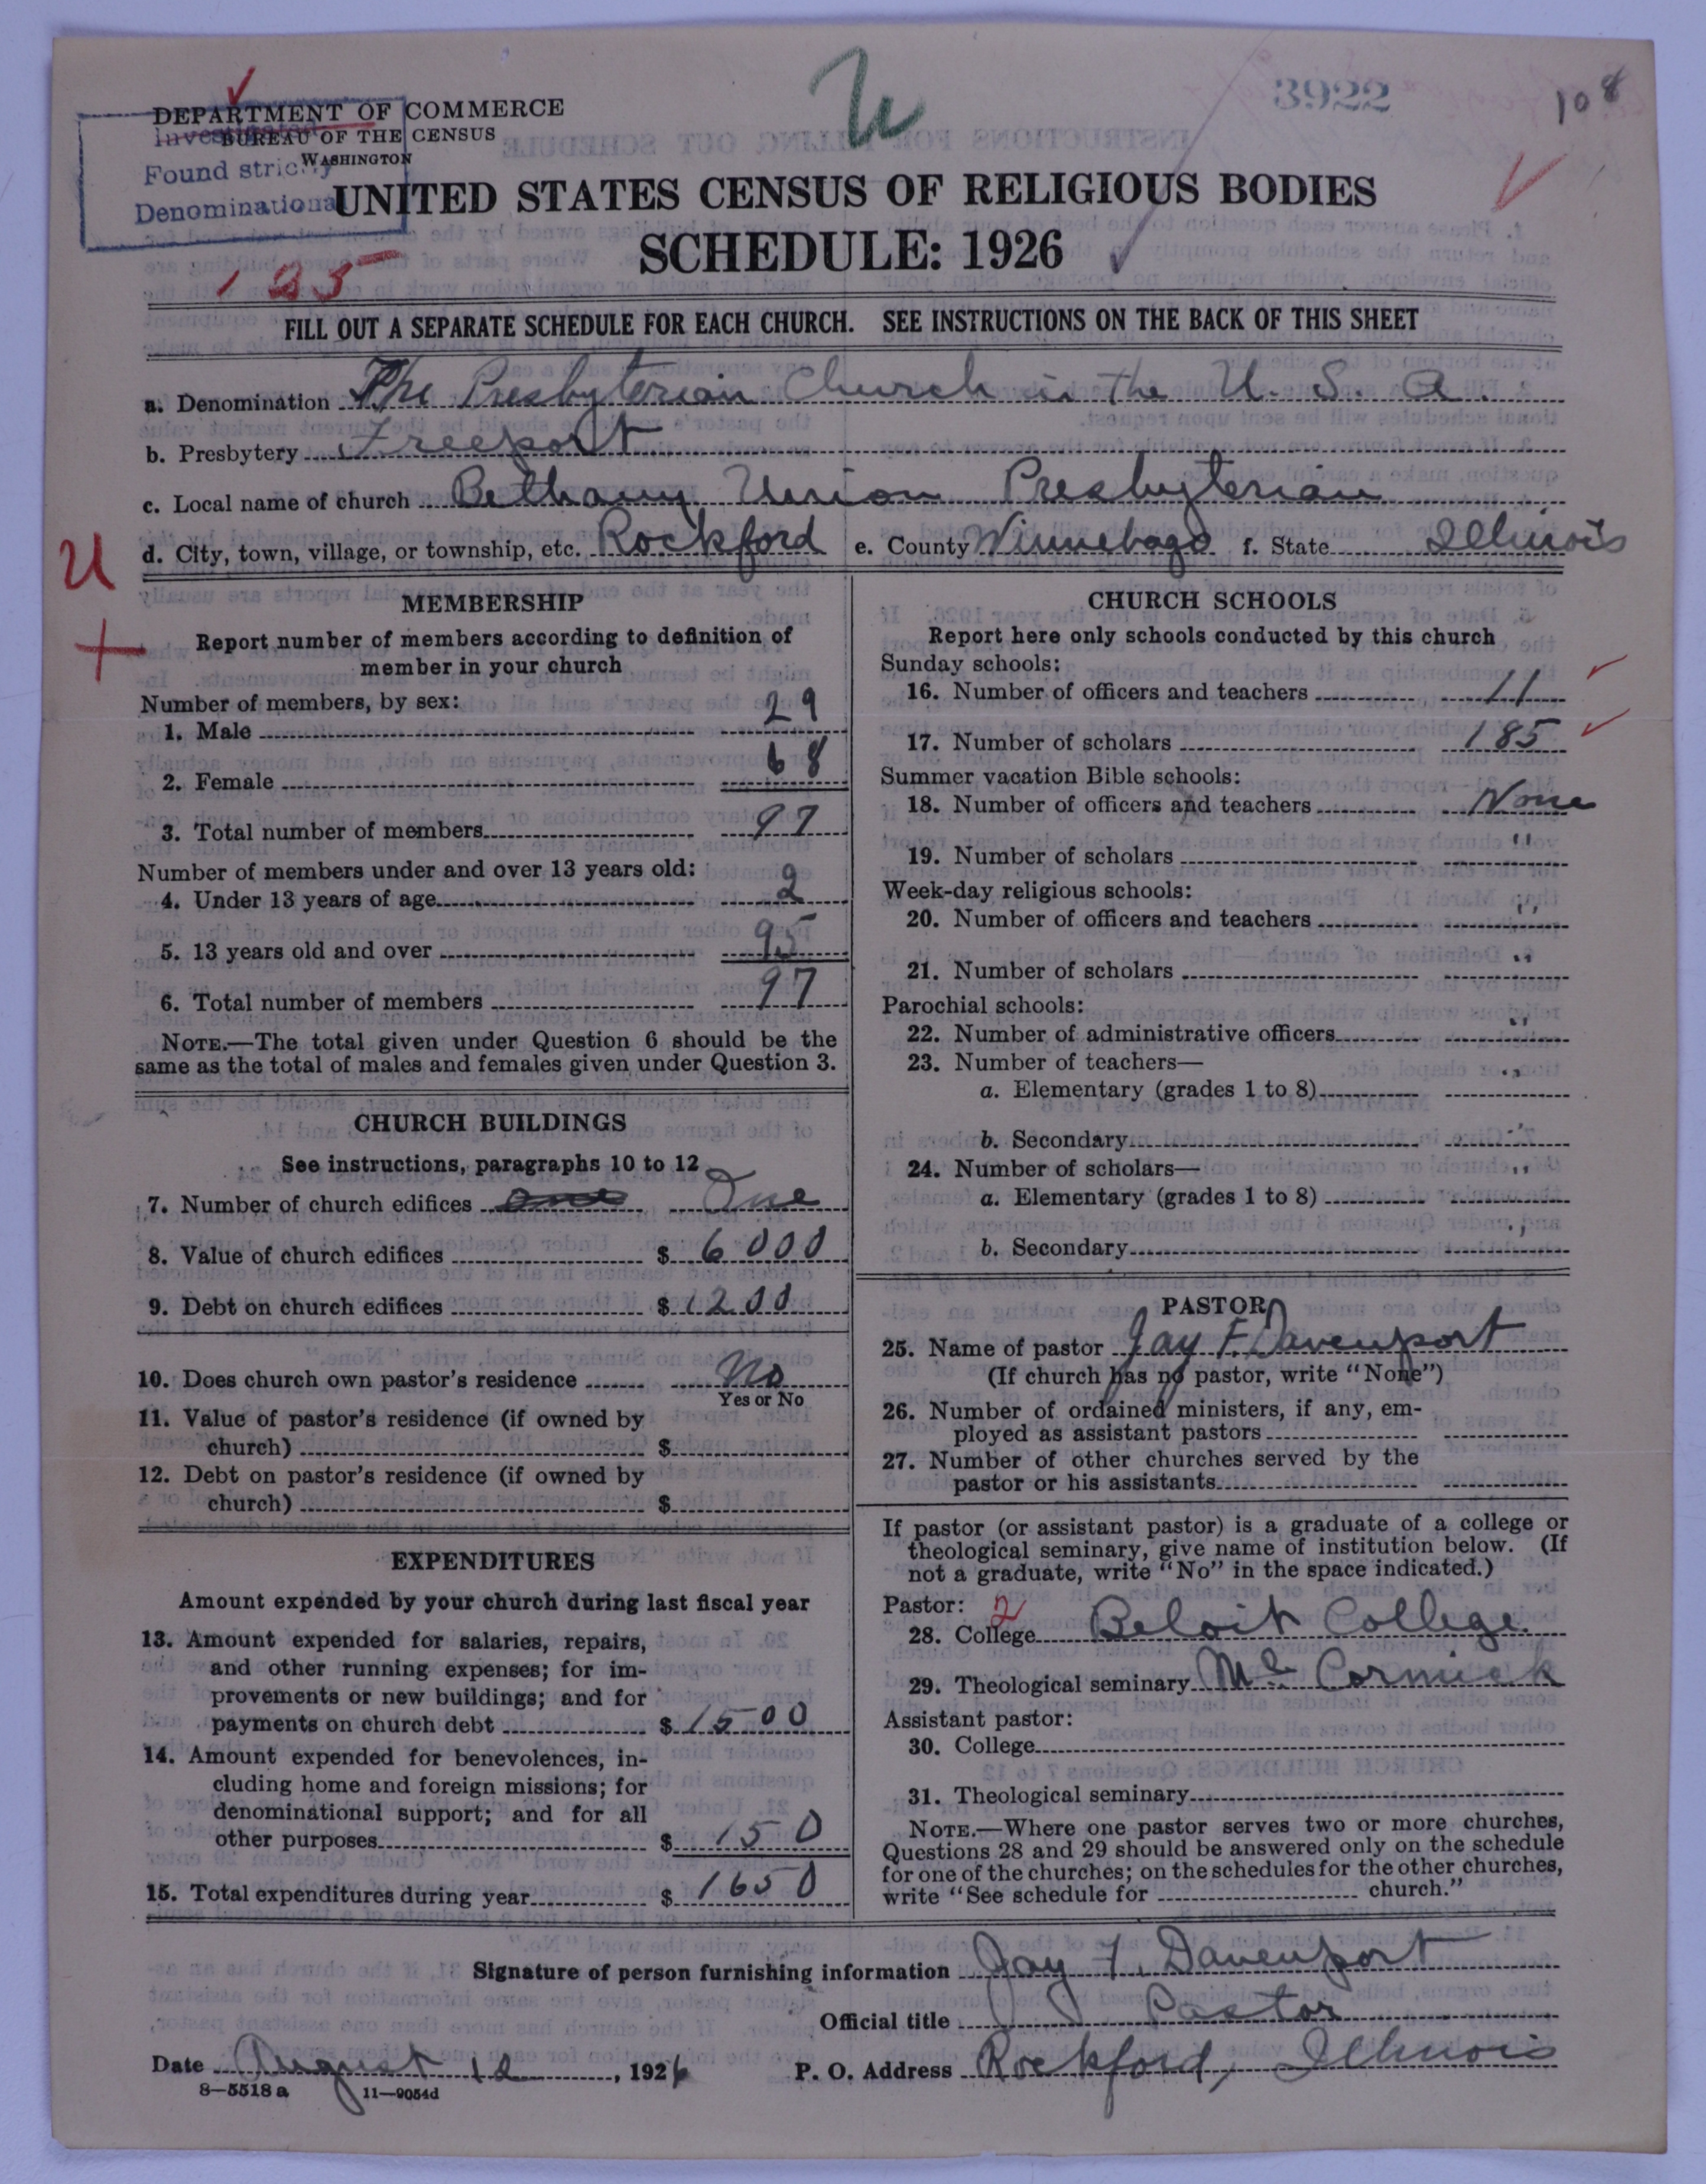 3922
108
DEPARTMENT OF COMMERCE
BUREAU OF THE CENSUS
WASHINGTON
Found strictly
Denominational
UNITED STATES CENSUS OF RELIGIOUS BODIES
SCHEDULE: 1926
FILL OUT A SEPARATE SCHEDULE FOR EACH CHURCH. SEE INSTRUCTIONS ON THE BACK OF THIS SHEET
a. Denomination The Presbyterian Church in the U. S. A.
b. Presbytery Freeport
c. Local name of church Bethany Union Presbyterian
d. City, town, village, or township, etc. Rockford e. County Winnebago f. State Illinois
U
MEMBERSHIP
Report number of members according to definition of
member in your church
Number of members, by sex:
1. Male 29
2. Female 68
3. Total number of members 97
Number of members under and over 13 years old:
4. Under 13 years of age 2
5. 13 years old and over 95
6. Total number of members 97
NOTE.—The total given under Question 6 should be the
same as the total of males and females given under Question 3.
CHURCH BUILDINGS
See instructions, paragraphs 10 to 12
7. Number of church edifices One
8. Value of church edifices $ 6000
9. Debt on church edifices $ 1200
10. Does church own pastor's residence No
Yes or No
11. Value of pastor's residence (if owned by
church) $
12. Debt on pastor's residence (if owned by
church) $
EXPENDITURES
Amount expended by your church during last fiscal year
13. Amount expended for salaries, repairs,
and other running expenses; for im-
provements or new buildings; and for
payments on church debt $ 1500
14. Amount expended for benevolences, in-
cluding home and foreign missions; for
denominational support; and for all
other purposes $ 150
15. Total expenditures during year $ 1650
CHURCH SCHOOLS
Report here only schools conducted by this church
Sunday schools:
16. Number of officers and teachers 11
17. Number of scholars 185
Summer vacation Bible schools:
18. Number of officers and teachers None
19. Number of scholars "
Week-day religious schools:
20. Number of officers and teachers "
21. Number of scholars "
Parochial schools:
22. Number of administrative officers "
23. Number of teachers— "
a. Elementary (grades 1 to 8)
b. Secondary "
24. Number of scholars— "
a. Elementary (grades 1 to 8)
b. Secondary "
PASTOR
25. Name of pastor Jay F. Davenport
(If church has no pastor, write "None")
26. Number of ordained ministers, if any, em-
ployed as assistant pastors
27. Number of other churches served by the
pastor or his assistants
If pastor (or assistant pastor) is a graduate of a college or
theological seminary, give name of institution below. (If
not a graduate, write "No" in the space indicated.)
Pastor: 2
28. College Beloit College.
29. Theological seminary McCormick
Assistant pastor:
30. College
31. Theological seminary
NOTE.—Where one pastor serves two or more churches,
Questions 28 and 29 should be answered only on the schedule
for one of the churches; on the schedules for the other churches,
write "See schedule for church."
Signature of person furnishing information Jay F. Davenport
Official title Pastor
Date August 12, 1926 P. O. Address Rockford, Illinois
8—5518a 11—9054d